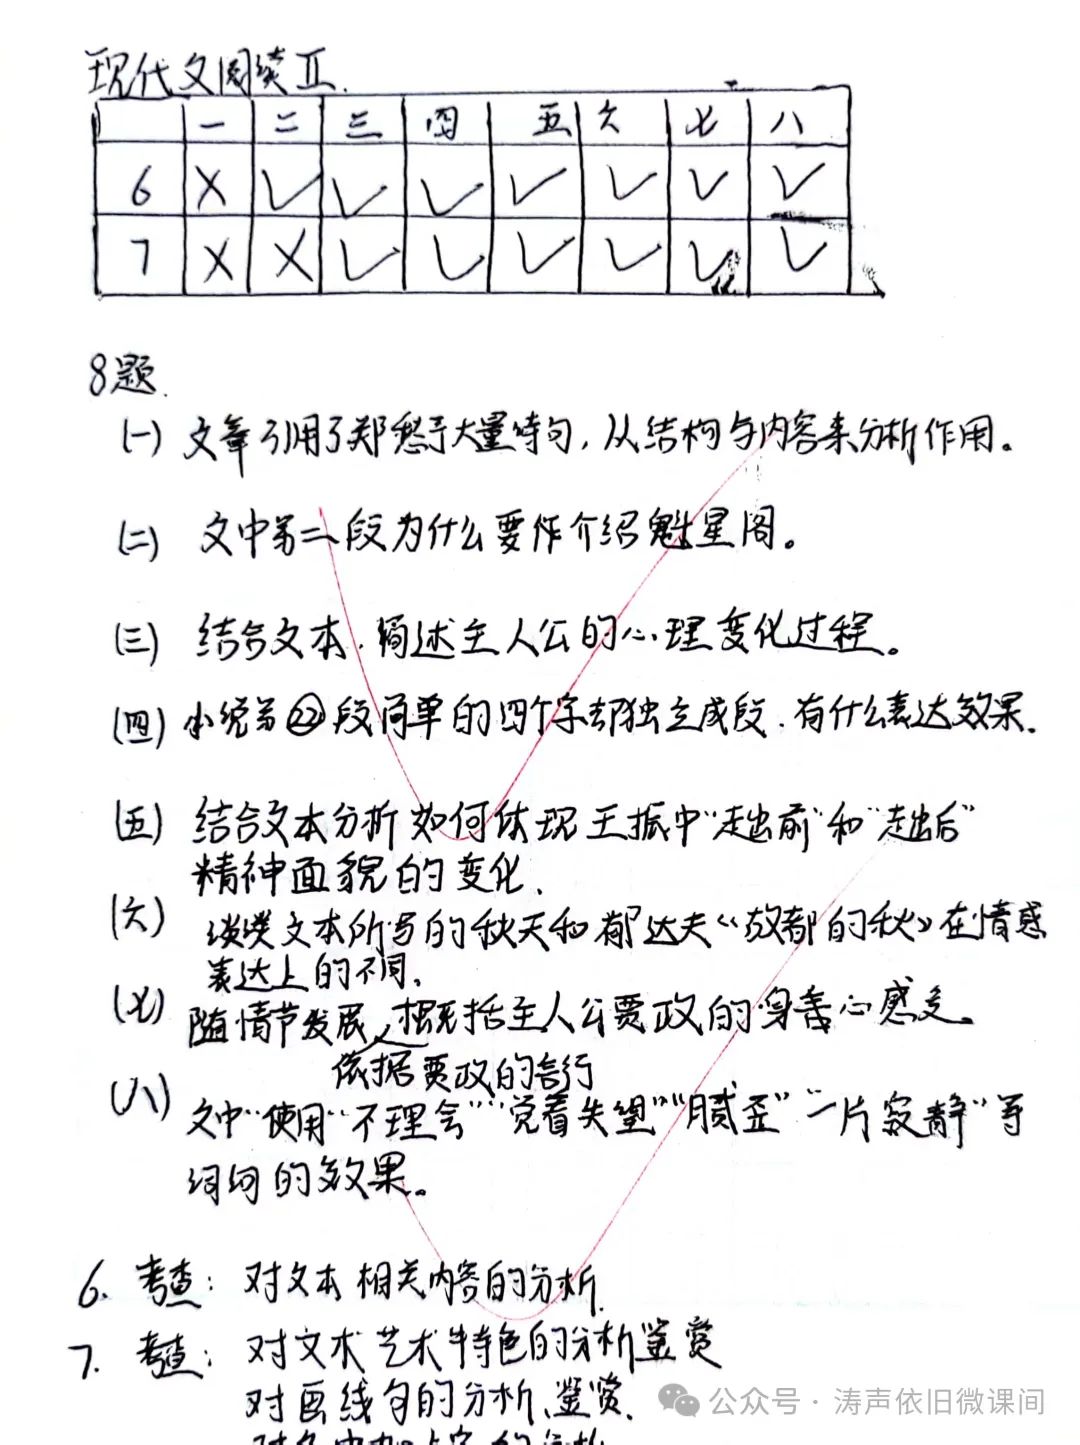 现代文阅读Ⅱ.
一 二 三 四 五 六 七 八
6 X ✓ ✓ ✓ ✓ ✓ ✓ ✓
7 X X ✓ ✓ ✓ ✓ ✓ ✓
8题.
(一) 文章引用了郑愁予大量诗句，从结构与内容来分析作用。
(二) 文中第二段为什么要作介绍魁星阁。
(三) 结合文本，简述主人公的心理变化过程。
(四) 小说第㉒段简单的四个字却独立成段，有什么表达效果.
(五) 结合文本分析如何体现王振中“走出前”和“走出后”
精神面貌的变化.
(六) 谈谈文本所写的秋天和郁达夫《故都的秋》在情感
表达上的不同.
(七) 随情节发展，概括主人公贾政的身善心感受.
依据贾政的言行
(八) 文中“使用“不理会”“觉着失望”“腻歪”“一片寂静”等
词句的效果。
6. 考查：对文本相关内容的分析.
7. 考查：对文术艺术特色的分析鉴赏
对画线句的分析、鉴赏.
公众号·涛声依旧微课间